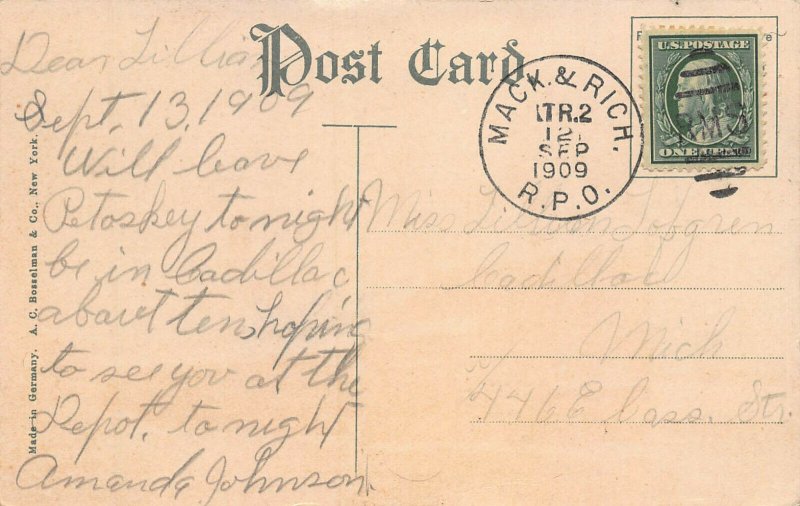 Post Card
Dear Lillian
Sept. 13, 1909
Will leave
Petoskey tonight
be in Cadillac
about ten, hoping
to see you at the
Depot. tonight
Amanda Johnson.
Made in Germany. A. C. Bosselman & Co., New York.
MACK. & RICH.
TR.2
SEP
1909
R.P.O.
U.S. POSTAGE
RMS
ONE
Miss Lillian Lofgren
Cadillac
Mich
446 E Cass. Str.